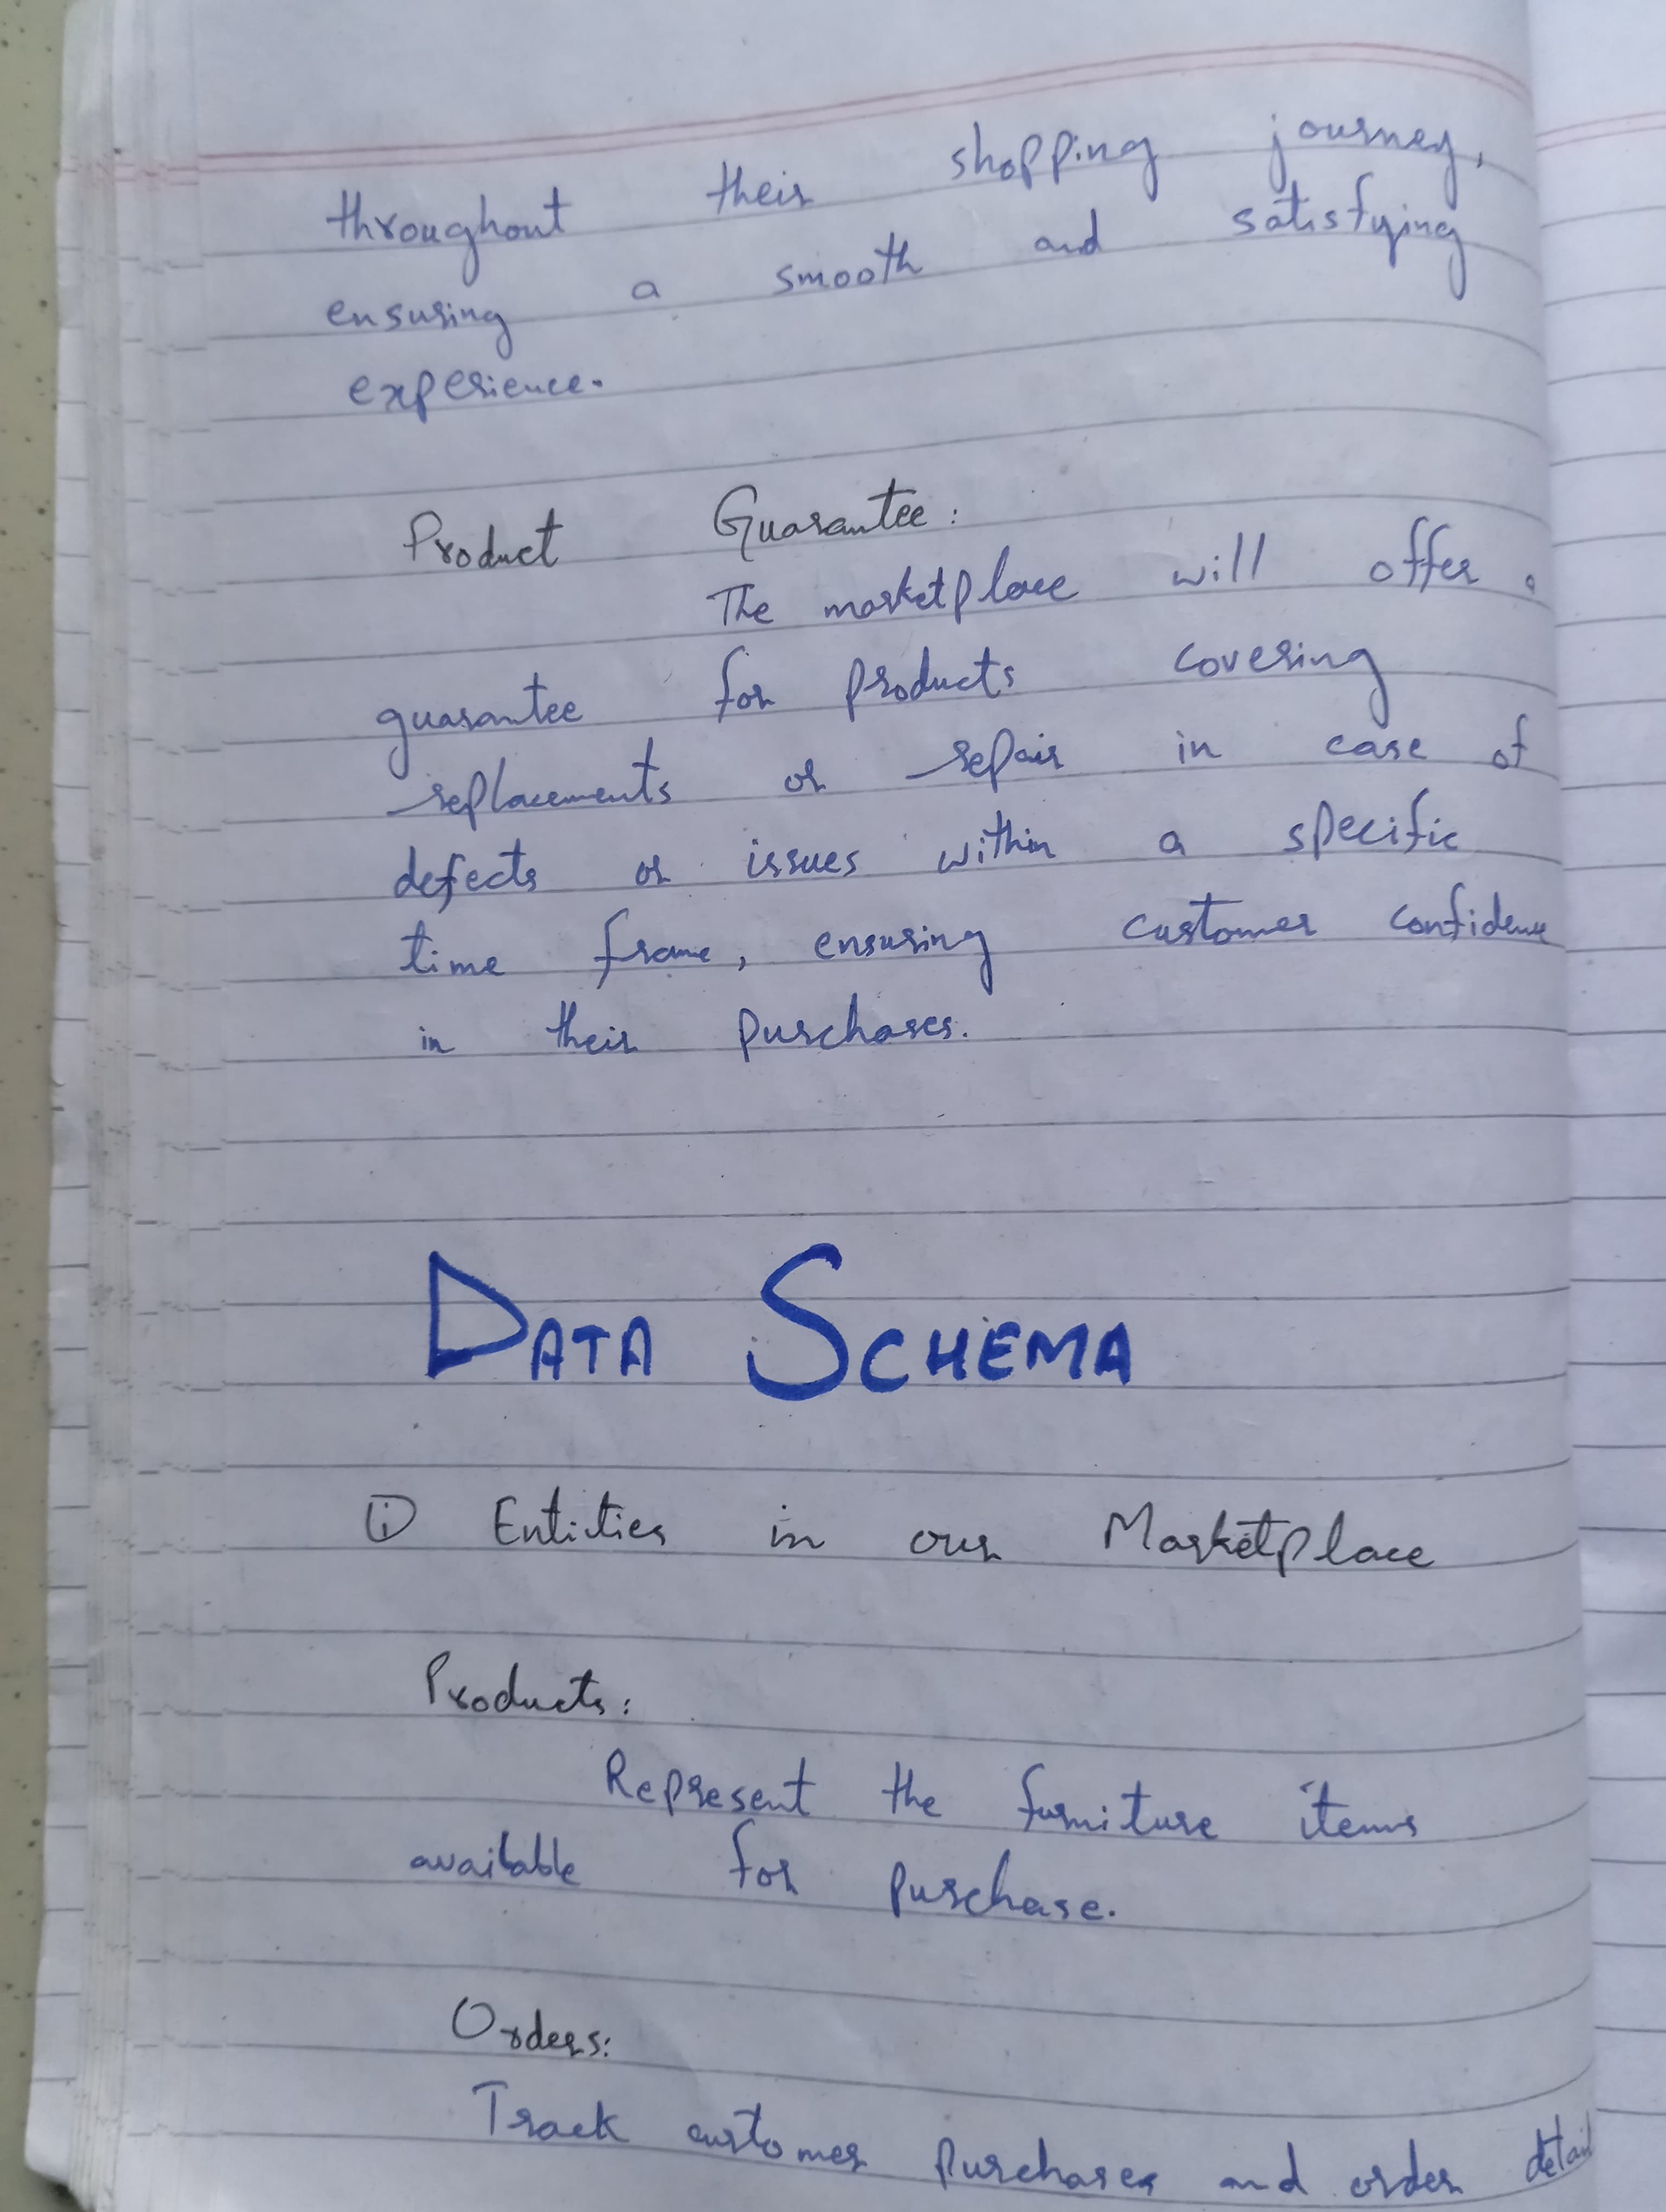 throughout their shopping journey,
ensuring a smooth and satisfying
experience.
Product Guarantee:
The marketplace will offer a
guarantee for products covering
replacements or repair in case of
defects or issues within a specific
time frame, ensuring customer confidence
in their purchases.
DATA SCHEMA
① Entities in our Marketplace
Products:
Represent the furniture items
available for purchase.
Orders:
Track customer purchases and order detail